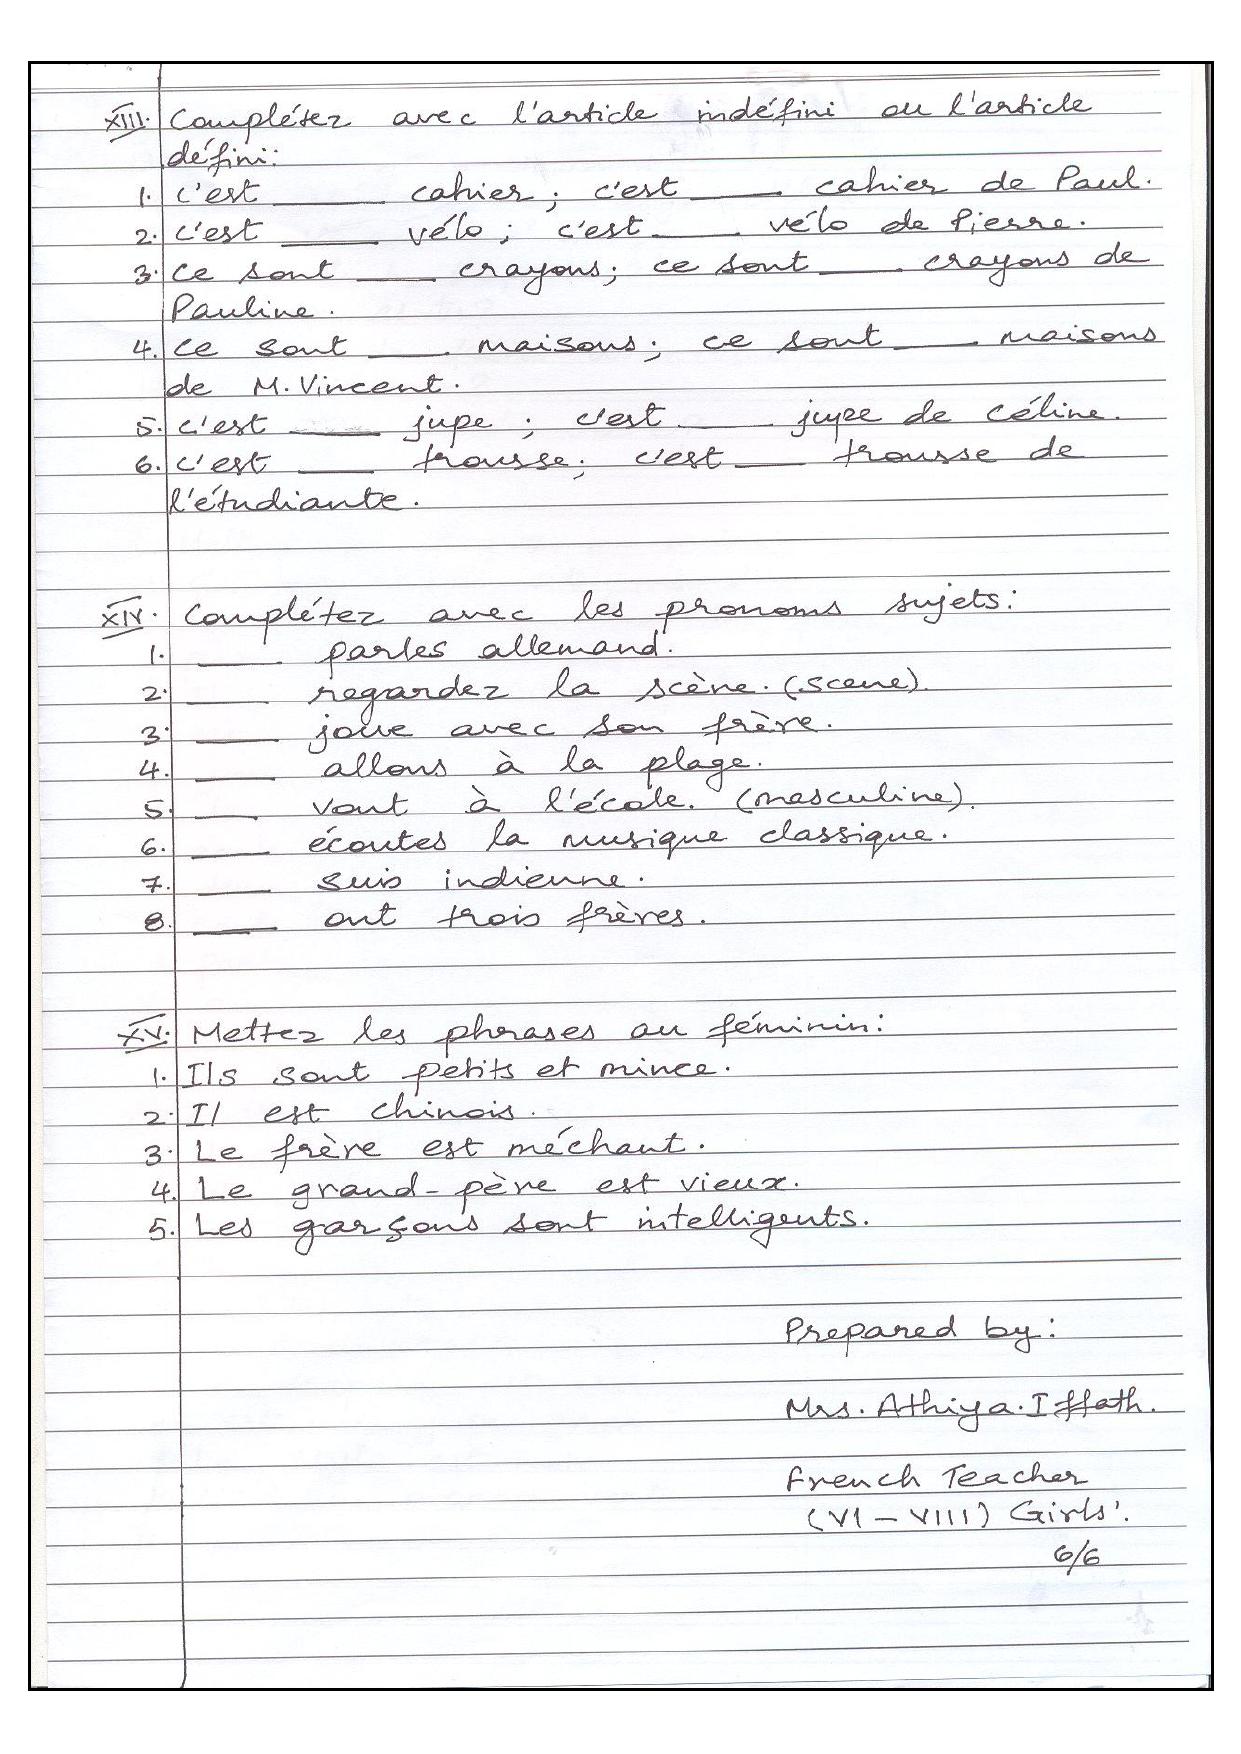 XIII. Complétez avec l'article indéfini ou l'article
défini:
1. C'est ____ cahier; c'est ____ cahier de Paul.
2. C'est ____ vélo; c'est ____ vélo de Pierre.
3. Ce sont ____ crayons; ce sont ____ crayons de
Pauline.
4. Ce sont ____ maisons; ce sont ____ maisons
de M. Vincent.
5. C'est ____ jupe; c'est ____ jupe de Céline.
6. C'est ____ trousse; c'est ____ trousse de
l'étudiante.
XIV. Complétez avec les pronoms sujets:
1. ____ parles allemand.
2. ____ regardez la scène. (scene).
3. ____ joue avec son frère.
4. ____ allons à la plage.
5. ____ vont à l'école. (masculine).
6. ____ écoutes la musique classique.
7. ____ suis indienne.
8. ____ ont trois frères.
XV. Mettez les phrases au féminin:
1. Ils sont petits et mince.
2. Il est chinois.
3. Le frère est méchant.
4. Le grand-père est vieux.
5. Les garçons sont intelligents.
Prepared by:
Mrs. Athiya. Iffath.
French Teacher
(VI - VIII) Girls'.
6/6